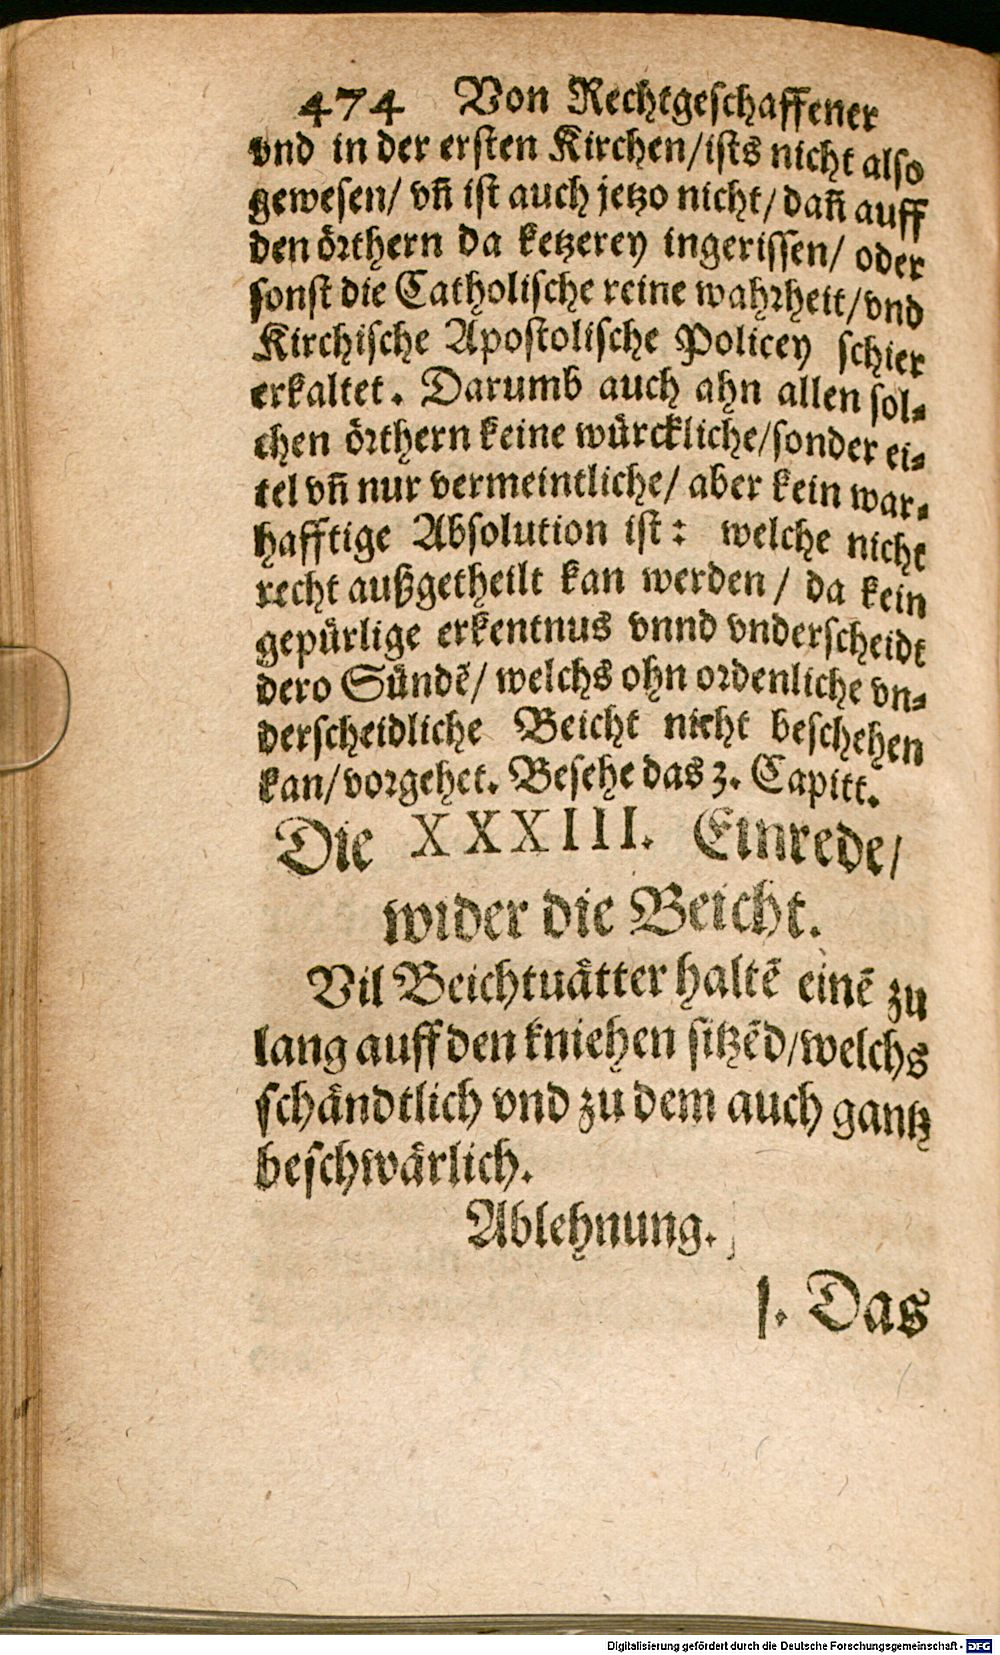 474 Von Rechtgeschaffener
vnd in der ersten Kirchen/ists nicht also
gewesen/ vn̄ ist auch jetzo nicht/ dan̄ auff
den örthern da ketzerey ingerissen/ oder
sonst die Catholische reine wahrheit/vnd
Kirchische Apostolische Policey schier
erkaltet. Darumb auch ahn allen sol⸗
chen örthern keine würckliche/sonder ei⸗
tel vn̄ nur vermeintliche/ aber kein war⸗
hafftige Absolution ist: welche nicht
recht außgetheilt kan werden/ da kein
gepürlige erkentnus vnnd vnderscheidt
dero Sündē/ welchs ohn ordenliche vn⸗
derscheidliche Beicht nicht beschehen
kan/vorgehet. Besehe das 3. Capitt.
Die XXXIII. Einrede/
wider die Beicht.
Vil Beichtuätter haltē einē zu
lang auff den kniehen sitzēd/welchs
schändtlich vnd zu dem auch gantz
beschwärlich.
Ablehnung.
1. Das
Digitalisierung gefördert durch die Deutsche Forschungsgemeinschaft - DFG